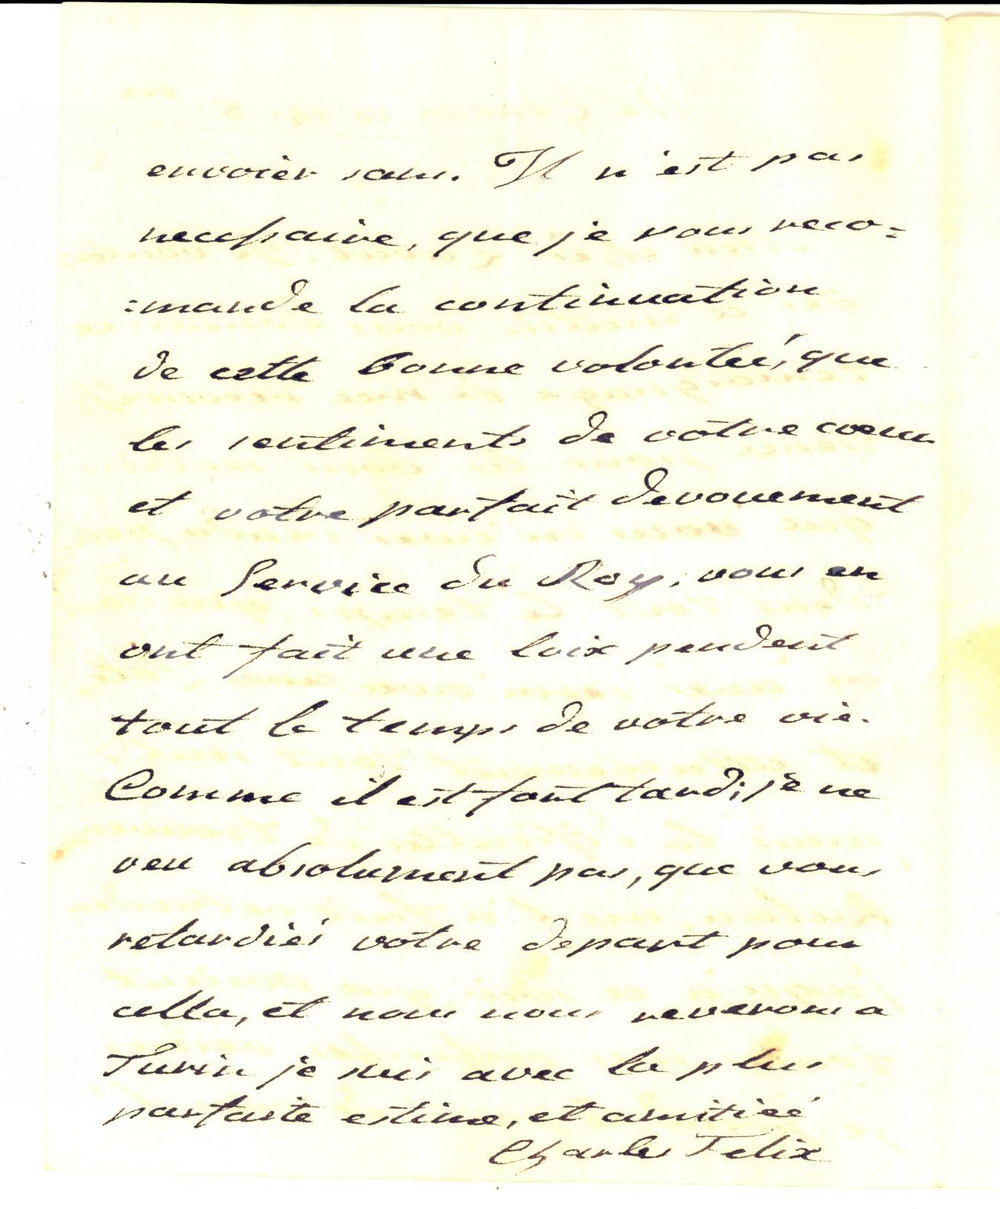 envoier sans. Il n'est pas
necessaire, que je vous reco=
=mande la continuation
de cette bonne volonteé, que
les sentiments de votre coeur
et votre parfait devouement
au Service du Roy, vous en
ont fait une loix pendent
tout le temps de votre vie.
Comme il est fort tard, je ne
veu absolument pas, que vous
retardiés votre depart pour
cella, et nous nous reverons a
Turin je suis avec la plus
parfaite estime, et amitieé
Charles Felix